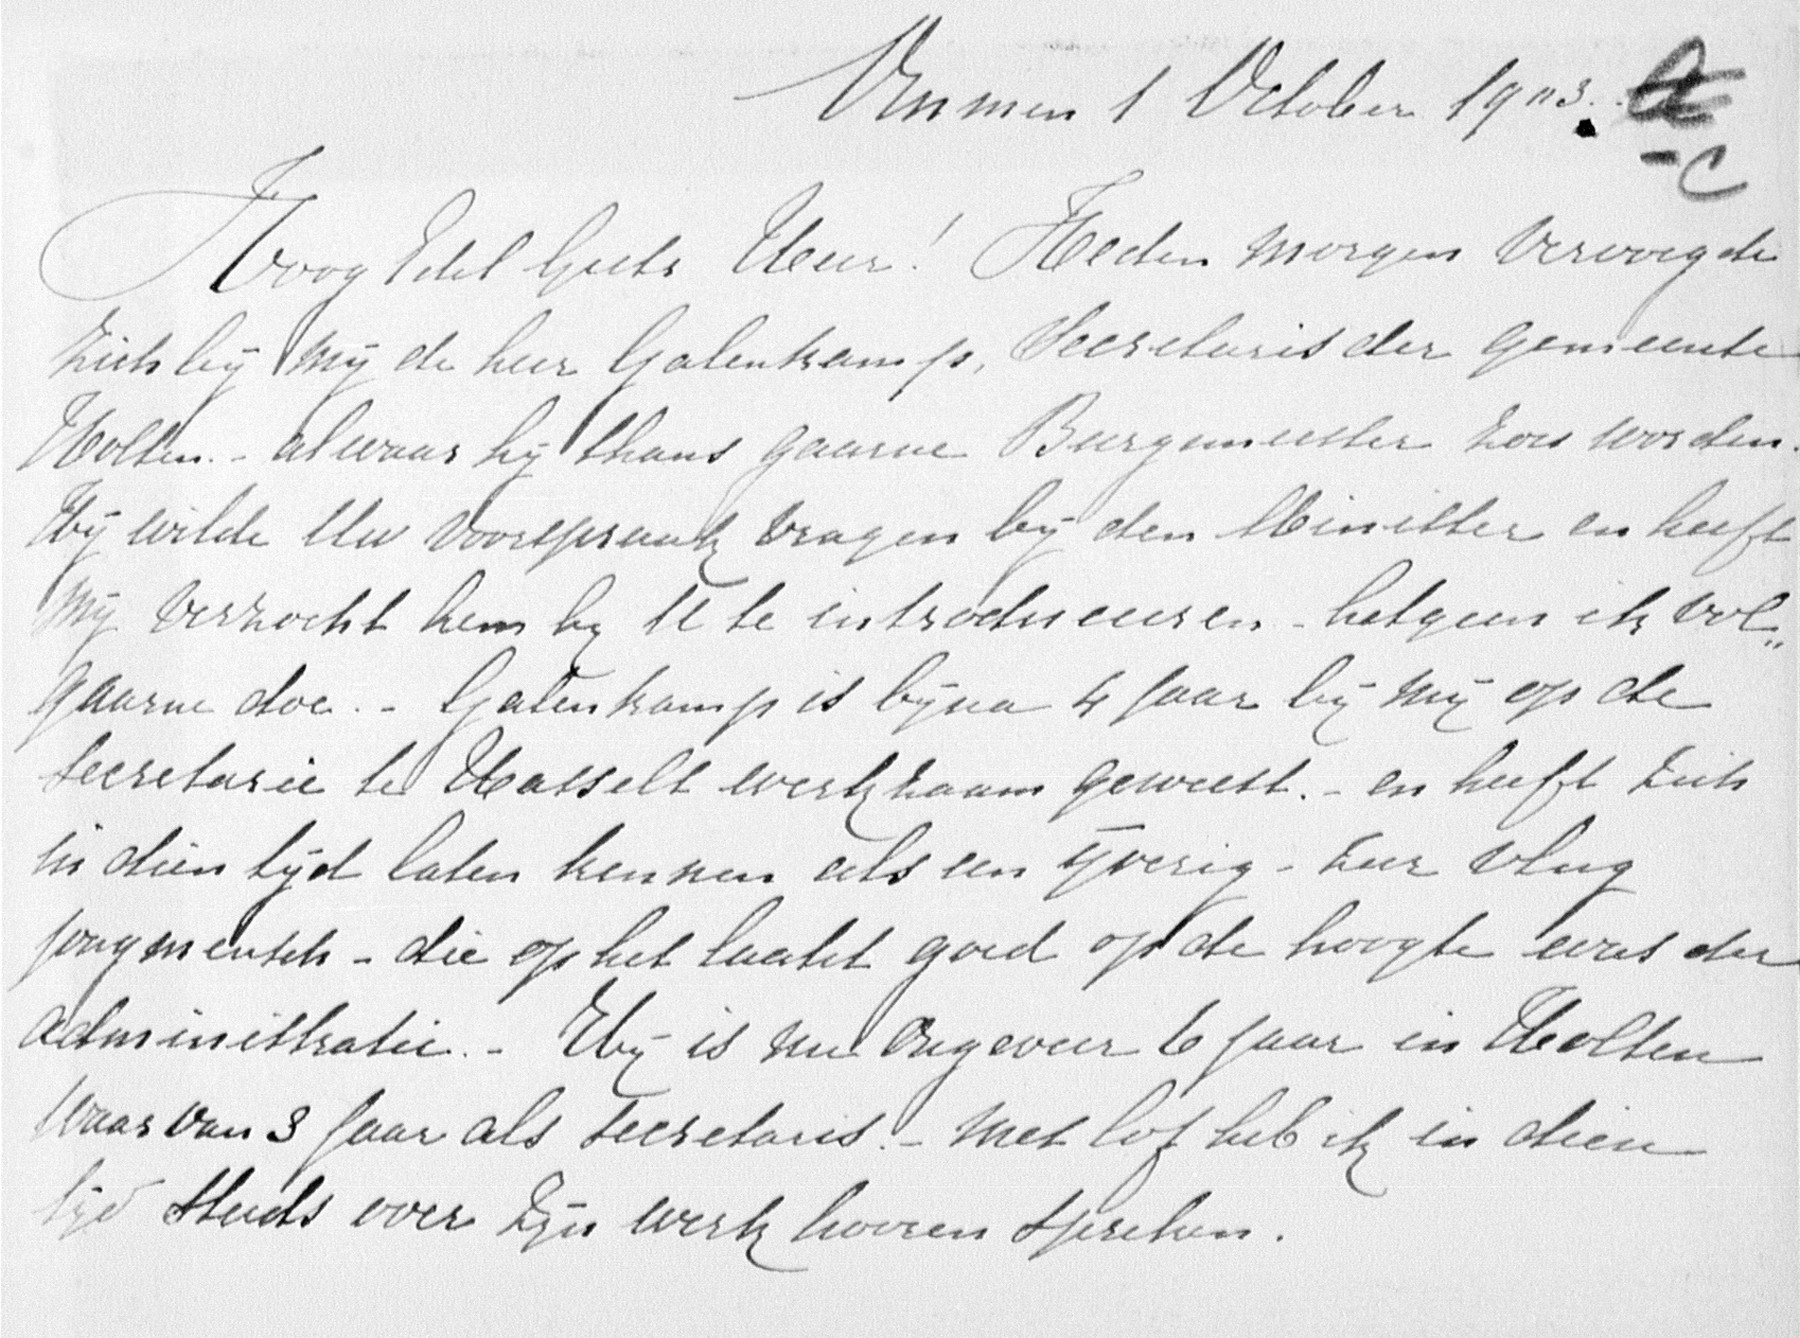 Ommen 1 October 1903.
-C
Hoog Edel Gestr Heer! Heden morgen vervoegde
zich bij mij de heer Galenkamp, Secretaris der gemeente
Holten. - alwaar hij thans gaarne Burgemeester zou worden.
Hij wilde Uw voorspraak vragen bij den Minister en heeft
mij verzocht hem bij U te introduceeren - hetgeen ik vol„
gaarne doe. - Galenkamp is bijna 4 jaar bij mij op de
secretarie te Hasselt werkzaam geweest. - en heeft zich
in dien tijd laten kennen als een ijverig - zeer vlug
jongmensch - die op het laatst goed op de hoogte was der
administratie. - Hij is nu ongeveer 6 jaar in Holten
waarvan 3 jaar als secretaris. - Met lof heb ik in dien
tijd steeds over zijn werk hooren spreken.